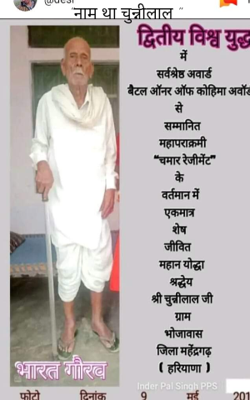 नाम था चुन्नीलाल "
द्वितीय विश्व युद्ध
में
सर्वश्रेष्ठ अवार्ड
बैटल ऑनर ऑफ कोहिमा अवॉर्ड
से
सम्मानित
महापराक्रमी
"चमार रेजीमेंट"
के
वर्तमान में
एकमात्र
शेष
जीवित
महान योद्धा
श्रद्धेय
श्री चुन्नीलाल जी
ग्राम
भोजावास
जिला महेंद्रगढ़
( हरियाणा )
भारत गौरव
Inder Pal Singh PPS
फोटो दिनांक 9 मई